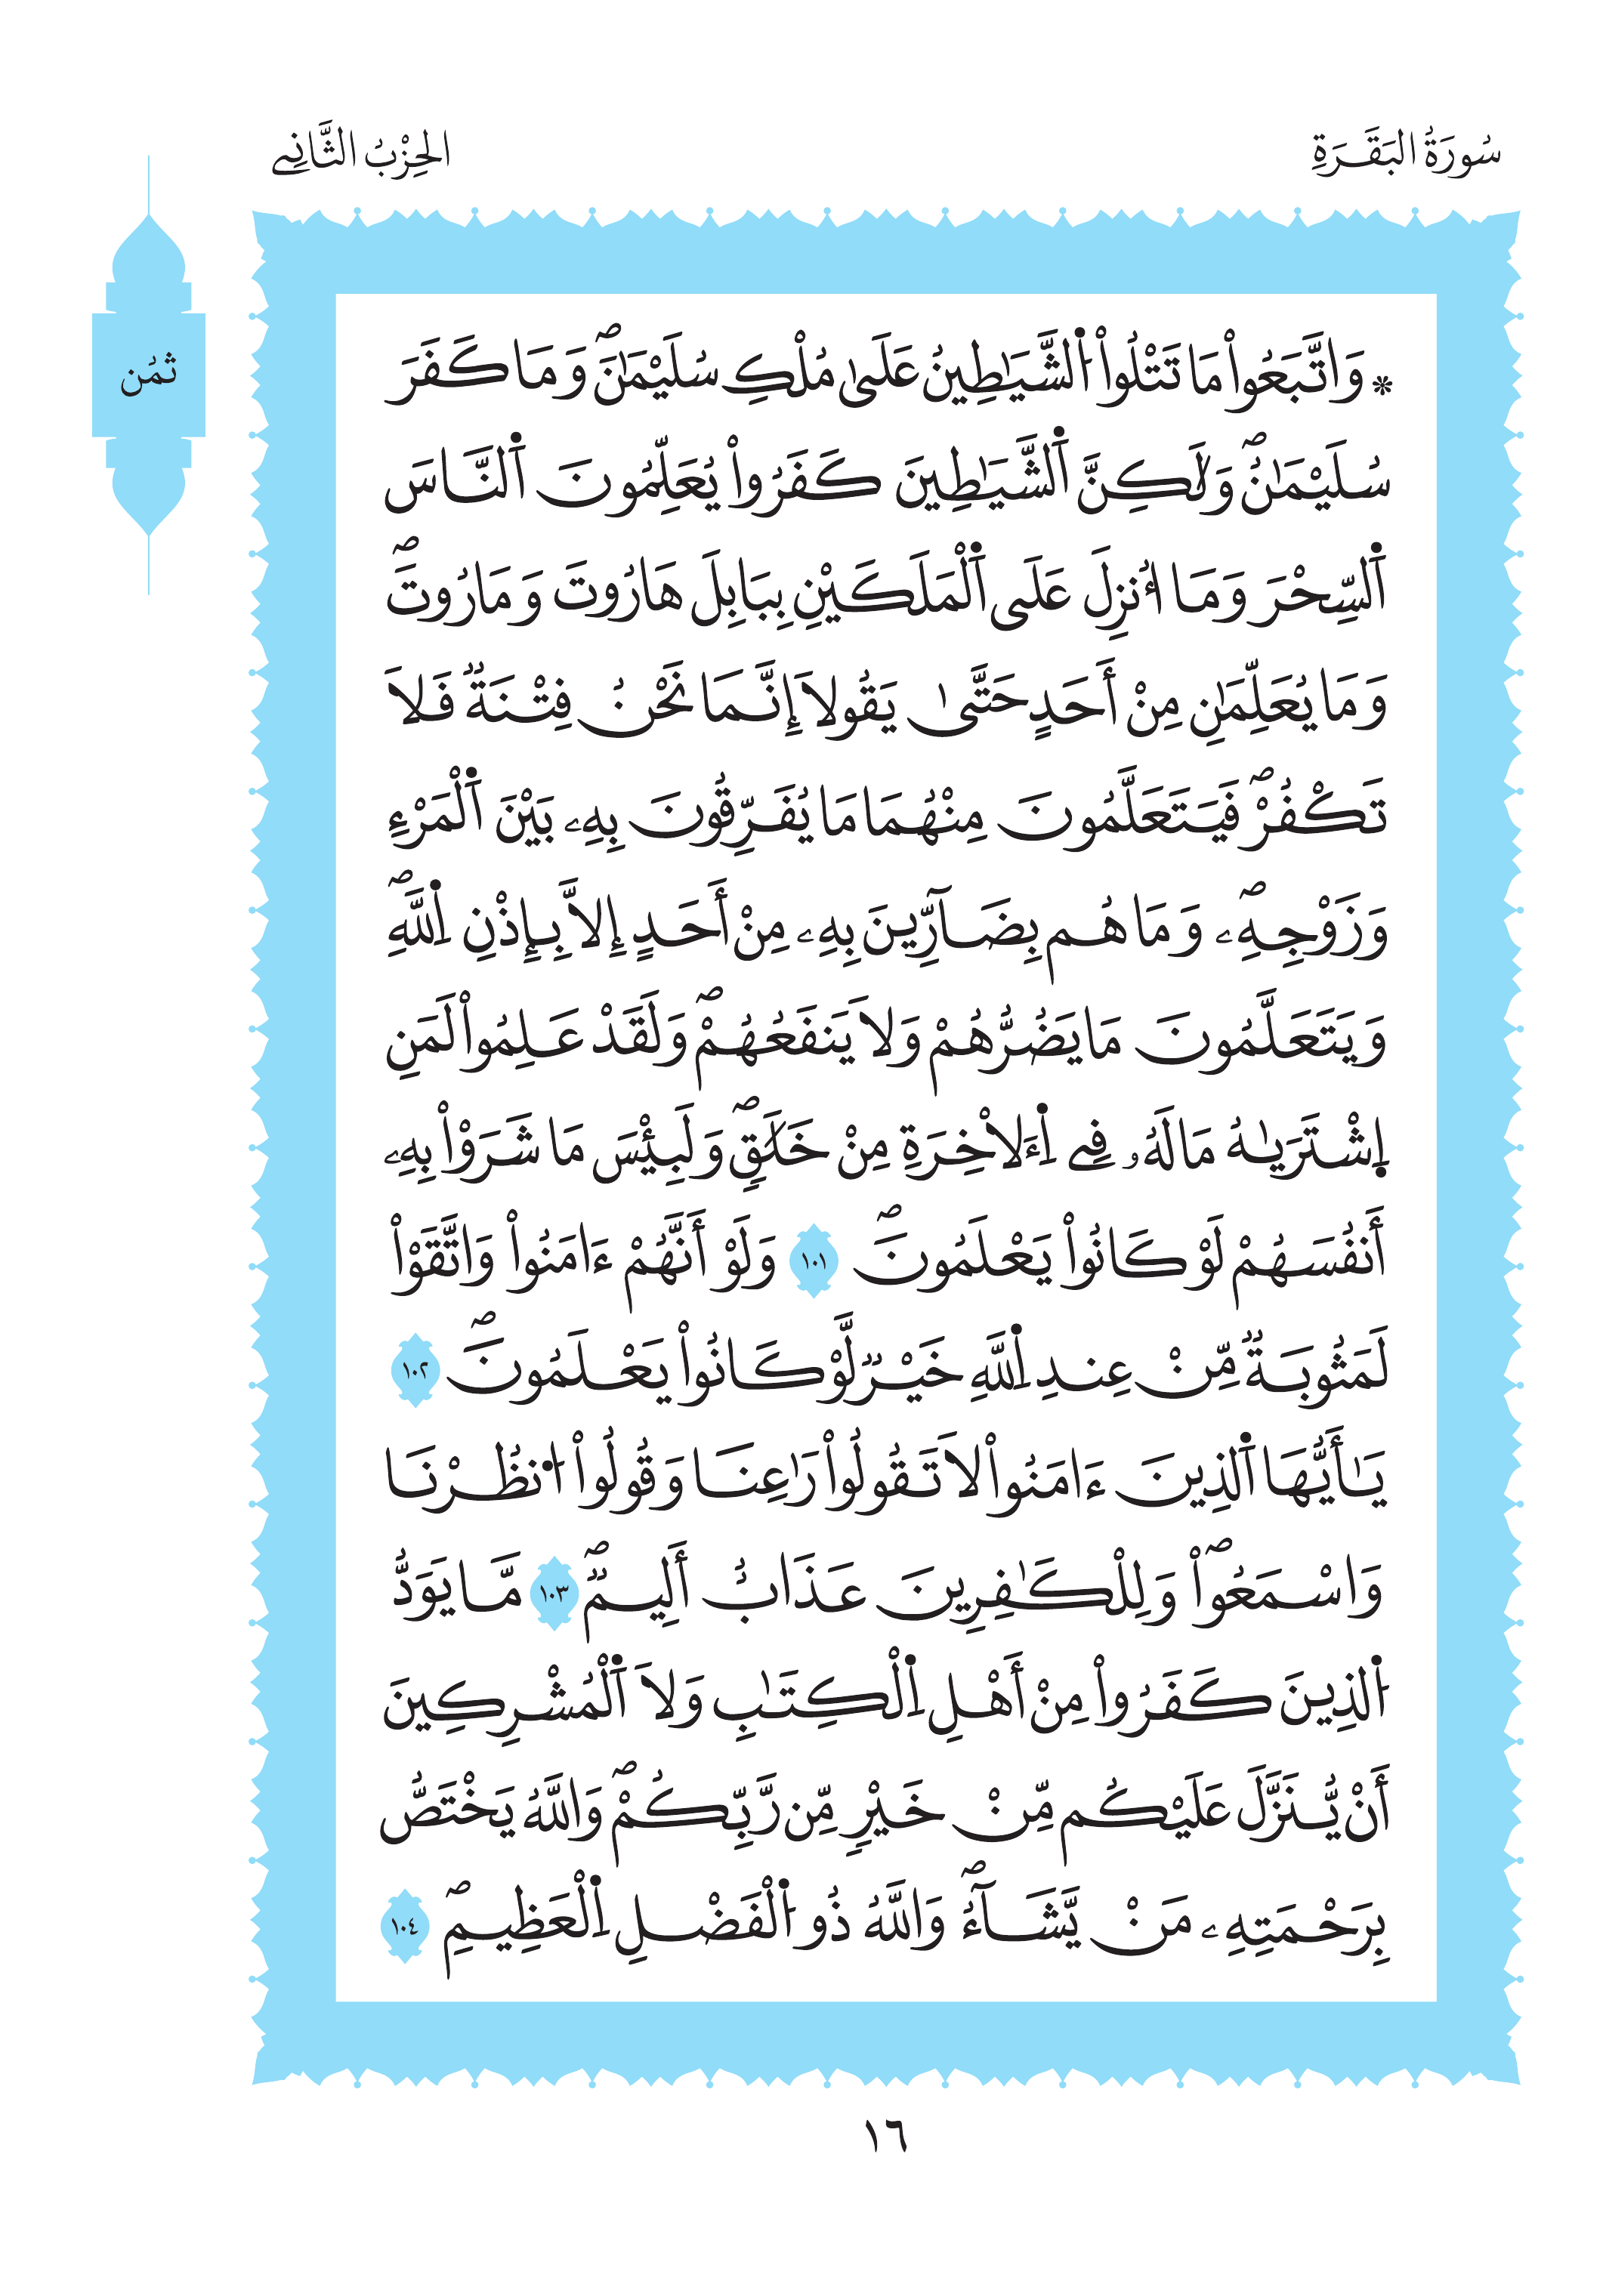 سُورَةُ البَقَرَةِ
الحِزْبُ الثَّانِے
ثمُن
* وَاتَّبَعُواْ مَا تَتْلُواْ اُ۬لشَّيَٰطِينُ عَلَىٰ مُلْكِ سُلَيْمَٰنَۖ وَمَا كَفَرَ
سُلَيْمَٰنُۖ وَلَٰكِنَّ اَ۬لشَّيَٰطِينَ كَفَرُواْ يُعَلِّمُونَ اَ۬لنَّاسَ
اَ۬لسِّحْرَ وَمَا أُنزِلَ عَلَى اَ۬لْمَلَكَيْنِ بِبَابِلَ هَارُوتَ وَمَارُوتَۖ
وَمَا يُعَلِّمَٰنِ مِنْ أَحَدٍ حَتَّىٰ يَقُولَا إِنَّمَا نَحْنُ فِتْنَةٌ فَلَا
تَكْفُرْۖ فَيَتَعَلَّمُونَ مِنْهُمَا مَا يُفَرِّقُونَ بِهِۦ بَيْنَ اَ۬لْمَرْءِ
وَزَوْجِهِۦۖ وَمَا هُم بِضَآرِّينَ بِهِۦ مِنْ أَحَدٍ إِلَّا بِإِذْنِ اِ۬للَّهِۖ
وَيَتَعَلَّمُونَ مَا يَضُرُّهُمْ وَلَا يَنفَعُهُمْۖ وَلَقَدْ عَلِمُواْ لَمَنِ
اِ۪شْتَرَيٰهُ مَا لَهُۥ فِے اِ۬ءَلَاخِرَةِ مِنْ خَلَٰقٍۖ وَلَبِئْسَ مَا شَرَوْاْ بِهِۦ
أَنفُسَهُمْ لَوْ كَانُواْ يَعْلَمُونَۖ ١٠١ وَلَوْ أَنَّهُمْ ءَامَنُواْ وَاتَّقَوْاْ
لَمَثُوبَةٌ مِّنْ عِندِ اِ۬للَّهِ خَيْرٌ لَّوْ كَانُواْ يَعْلَمُونَۖ ١٠٢
يَٰأَيُّهَا اَ۬لذِينَ ءَامَنُواْ لَا تَقُولُواْ رَٰعِنَا وَقُولُواْ اُ۟نظُرْنَا
وَاسْمَعُواْۖ وَلِلْكَٰفِرِينَ عَذَابٌ أَلِيمٌۖ ١٠٣ مَّا يَوَدُّ
اُ۬لذِينَ كَفَرُواْ مِنْ أَهْلِ اِ۬لْكِتَٰبِ وَلَا اَ۬لْمُشْرِكِينَ
أَنْ يُّنَزَّلَ عَلَيْكُم مِّنْ خَيْرٍ مِّن رَّبِّكُمْۖ وَاللَّهُ يَخْتَصُّ
بِرَحْمَتِهِۦ مَنْ يَّشَآءُۖ وَاللَّهُ ذُو اُ۬لْفَضْلِ اِ۬لْعَظِيمِۖ ١٠٤
١٦